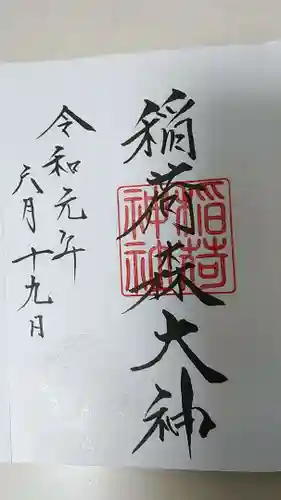 稲荷森大神
稲荷
神社
令和元年
六月十九日